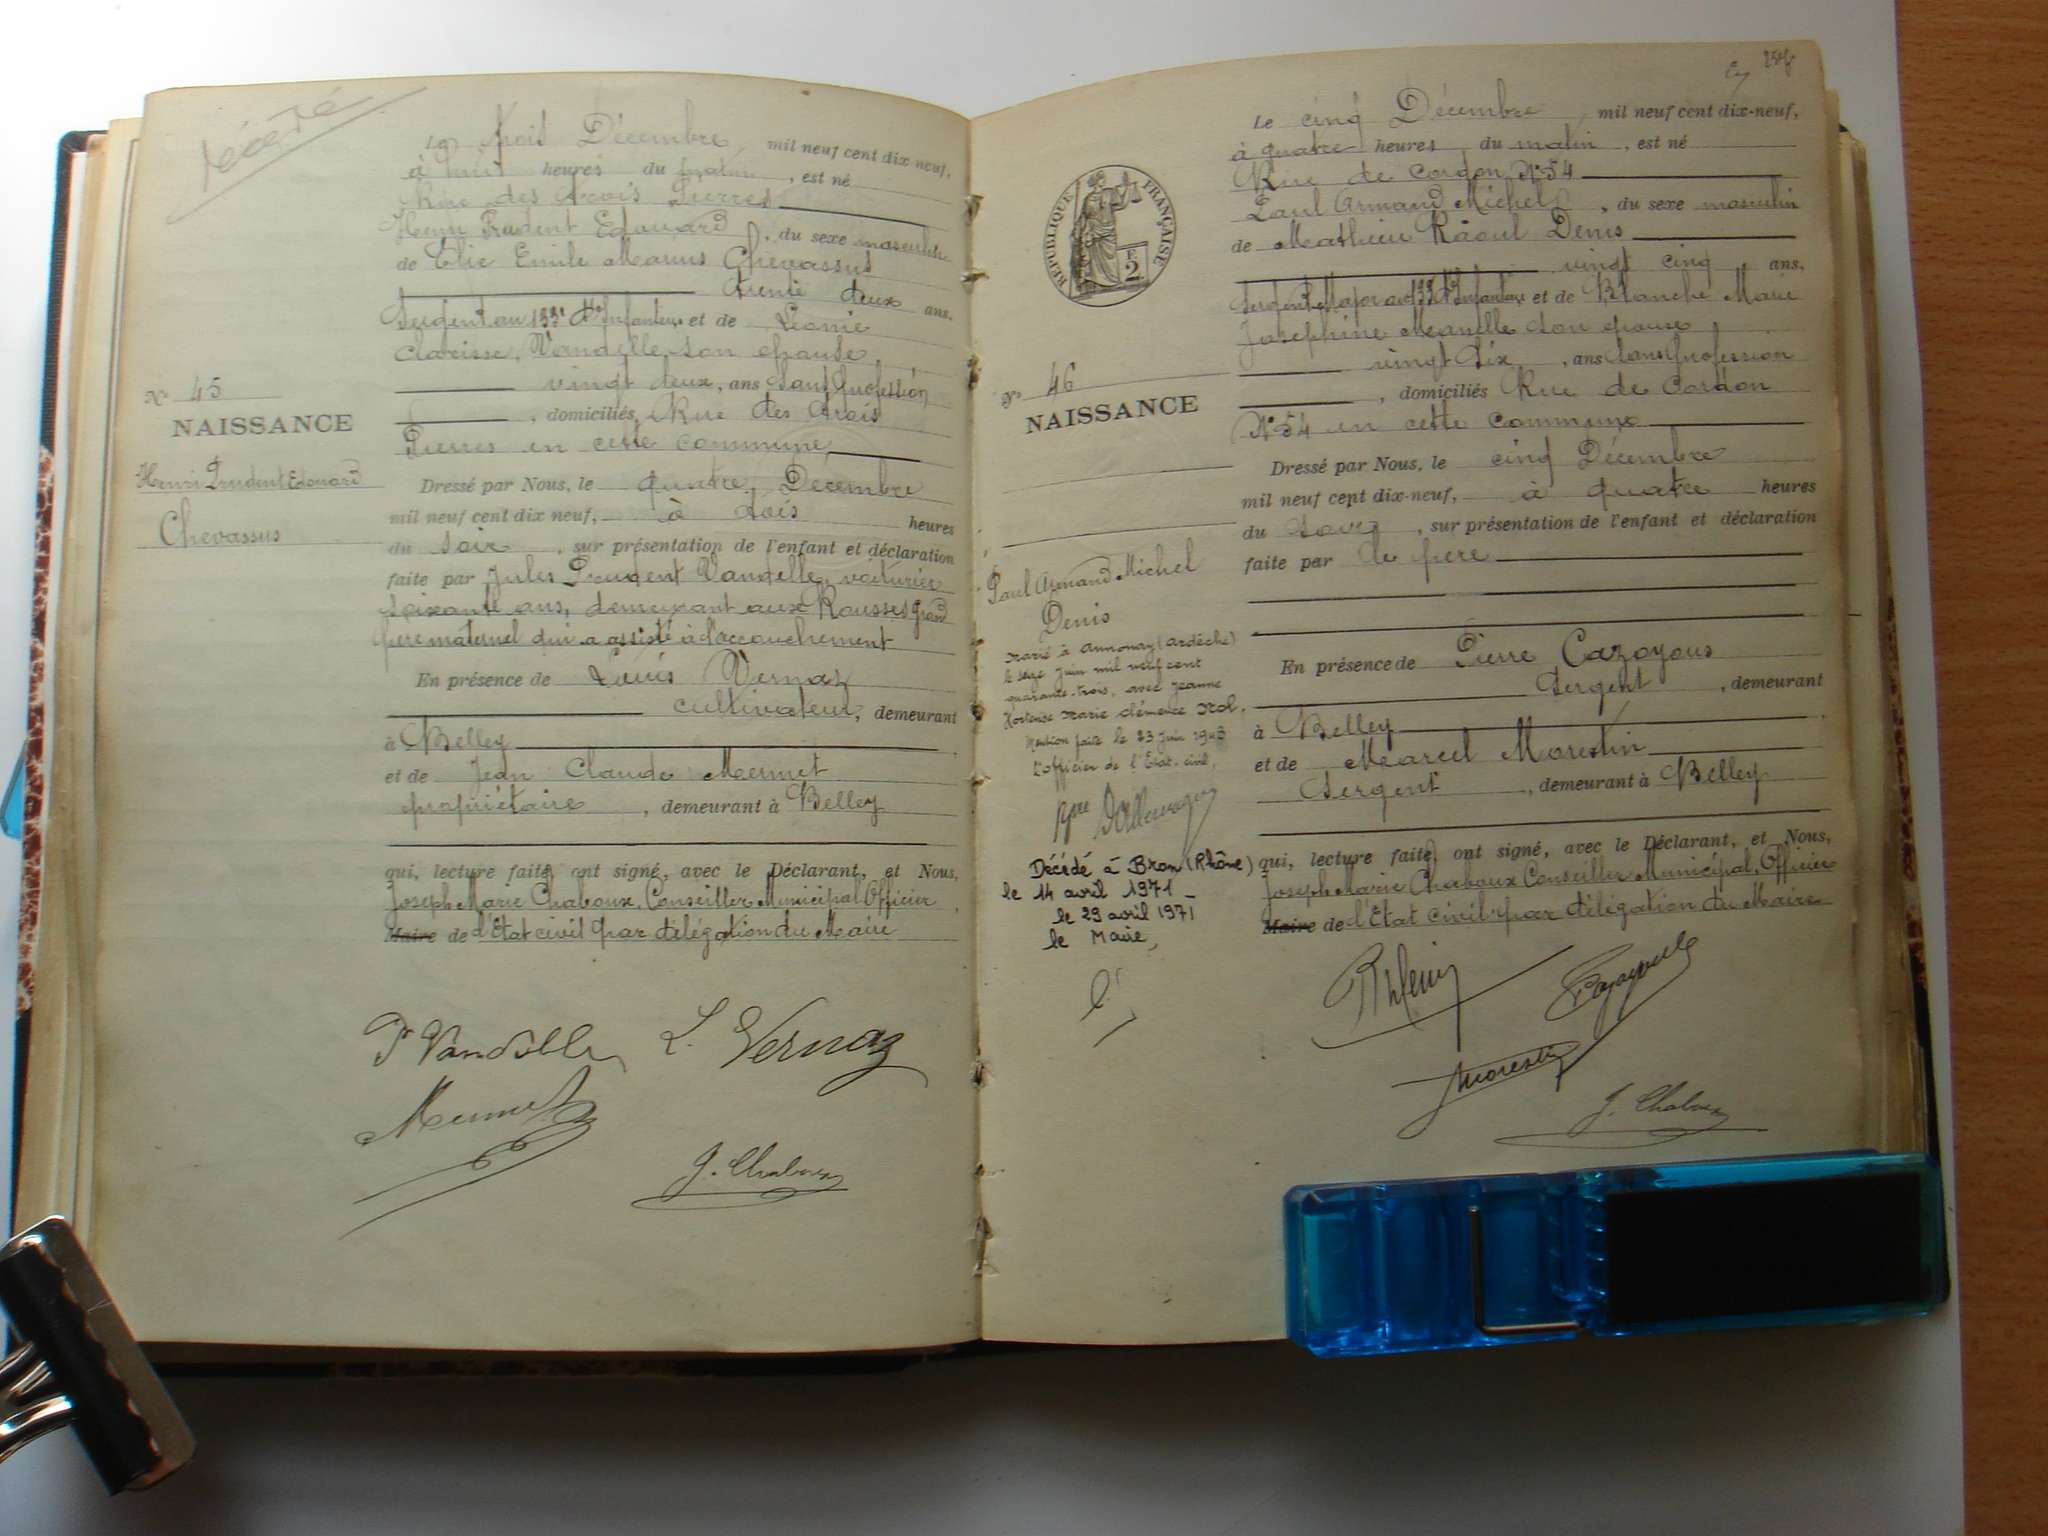 décédé
Le trois Décembre mil neuf cent dix-neuf,
à huit heures du matin, est né
Rue des trois Pierres
Henri Prudent Edouard, du sexe masculin
de Elie Emile Marius Chevassus
trente deux ans.
Sergent au 133e d'Infanterie et de Léonie
Clarisse Vandelle son épouse
vingt deux, ans Sans Profession
, domiciliés Rue des trois
Pierres en cette commune
N° 45
NAISSANCE
Henri Prudent Edouard
Chevassus
Dressé par Nous, le quatre Décembre
mil neuf cent dix-neuf, à trois heures
du soir, sur présentation de l'enfant et déclaration
faite par Jules Prudent Vandelle, voiturier
soixante ans, demeurant aux Rousses grand
père maternel qui a assisté à l'accouchement
En présence de Louis Vernaz
cultivateur, demeurant
à Belley
et de Jean Claude Mermet
propriétaire, demeurant à Belley
qui, lecture faite, ont signé, avec le Déclarant, et Nous,
Joseph Marie Chaboux, Conseiller Municipal Officier
Maire de l'Etat civil par délégation du Maire
P Vandelle L. Vernaz
Mermet
J. Chaboux
Le cinq Décembre, mil neuf cent dix-neuf,
à quatre heures du matin, est né
Rue de Cordon N° 54
Paul Armand Michel, du sexe masculin
de Mathieu Râoul Denis
vingt cinq ans.
Sergent Major au 133e d'Infanterie et de Blanche Marie
Joséphine son épouse
vingt Six, ans Sans Profession
, domiciliés Rue de Cordon
N° 54 en cette commune
REPUBLIQUE FRANÇAISE
2
N° 46
NAISSANCE
Paul Armand Michel
Denis
Marié à Annonay (Ardèche)
le seize Juin mil neuf cent
quarante-trois, avec Jeanne
Hortense Marie Clémence
Mention faite le 23 Juin 1943
L'officier de l'Etat-civil,
Décédé à Bron (Rhône)
le 14 avril 1971 _
le 29 avril 1971
le Maire,
Dressé par Nous, le cinq Décembre
mil neuf cent dix-neuf, à quatre heures
du soir, sur présentation de l'enfant et déclaration
faite par le père
En présence de Pierre Cazoyous
Sergent, demeurant
à Belley
et de Marcel Morestin
Sergent, demeurant à Belley
qui, lecture faite, ont signé, avec le Déclarant, et Nous,
Joseph Marie Chaboux Conseiller Municipal, Officier
Maire de l'Etat civil par délégation du Maire
Morestin
J. Chaboux